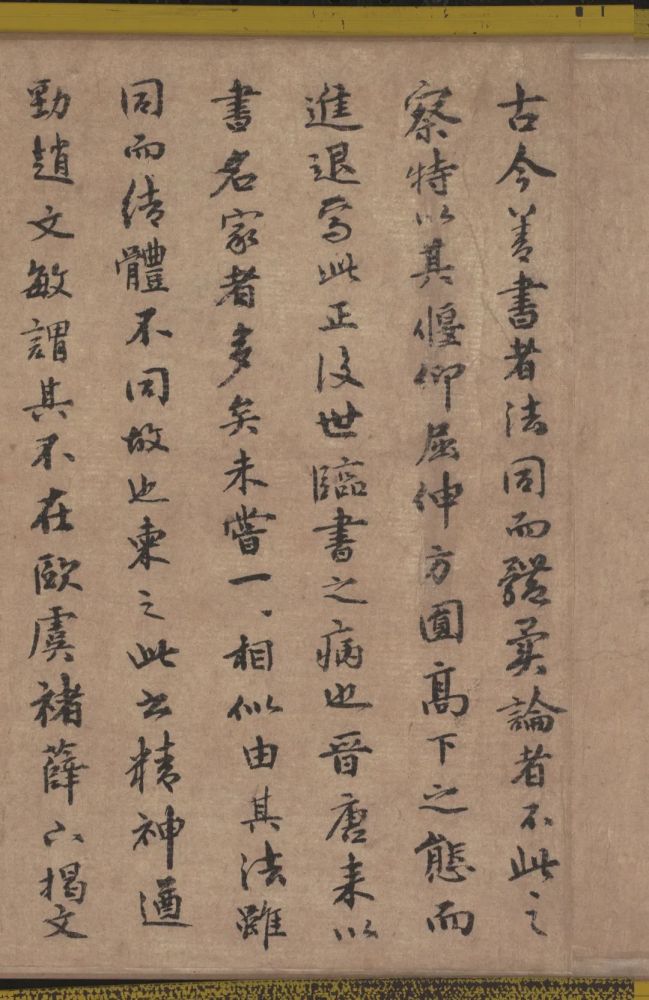 古今善書者法同而體異論者不此之
察特以其偃仰屈伸方圓高下之態而
進退焉此正後世臨書之病也晉唐來以
書名家者多矣未嘗一〻相似由其法雖
同而結體不同故也東之此書精神遒
勁趙文敏謂其不在歐虞褚薛下揭文